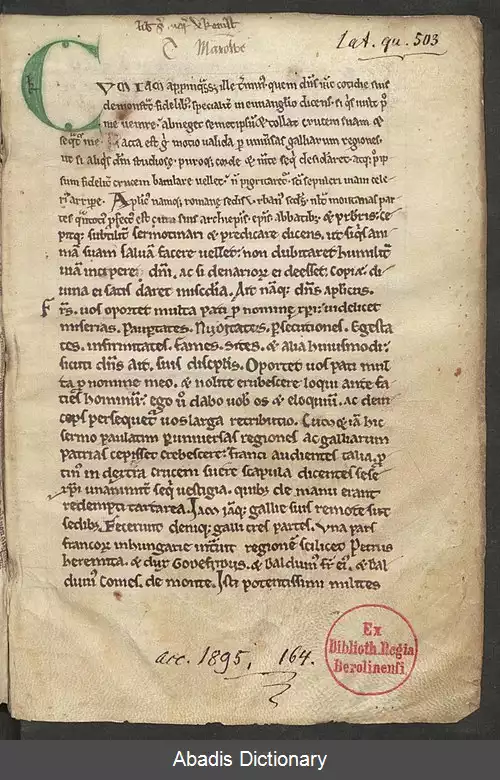 lat. qu. 503
Cum iam appinq̄ss& ille t̄minus quem dn̄s ih̄c cotidie suis
demonstrat fidelib; specialit̄ in euuanglio dicens. si q̄s uult p
me uenire. abneget semetipsū & tollat crucem suam &
seq̄t̄ me. Facta est g̃ motio ualida p uniuersas galliarum regiones.
ut si aliq̄s dn̄m studiose puroq; corde & m̄te seq̄ desidaret. atq;
sum fidelit̄ crucem baiulare uellet. n̄ pigritaret sc̄i sepulcri uiam cele
ri arripe. Aplic; namq; romanę sedis urban; scd̄s. ult̄ montanas par
tes profect; est cum suis archiepis. epis. abbatib; & prbris. ce
pitq; subtilit̄ sermocinari & predicare dicens. ut siq̄s ani
mā suam saluam facere uellet. non dubitaret humilit̄
uiā incipere dn̄i. ac si denariorꝝ ei deess& copia. di
uina ei satis daret misc̄dia. Ait nāq; dn̄s aplicus.
Frs̄. uos oportet multa pati p nomine xp̄i. uidelicet
miserias. Paup̄tates. Nuditates. P̄secutiones. Egesta
tes. infirmitates. fames. Sites. & alia huiusmodi.
sicuti dn̄s ait. suis discplis. Oportet uos pati mul
ta p nomine meo. & nolite erubescere loqui ante fa
ties hominū. ego ū dabo uob os & eloquiū. ac dein
ceps persequet̄ uos larga retributio. Cumq; iā hic
sermo paulatim p uniuersas regiones ac galliarum
patrias cepisset crebescere. franci audientes talia. p
tin; in dextra crucem suere scapula dicentes sese
xp̄i unanimit̄ seq̄ uestigia. quib; de manu erant
redempti tartarea. Iam iāq; gallie suis remote sunt
sedib; Fecerunt deniq; galli tres partes. Una pars
francorꝝ in hungarie intuit regionē scilicet Petrus
heremita. & dux Godefridus. & balduin; fr̄ ei. & bal
duin; comes. de monte. Isti potentissimi milites
acc. 1895, 164.
Ex
Biblioth. Regia
Berolinensi
Abadis Dictionary